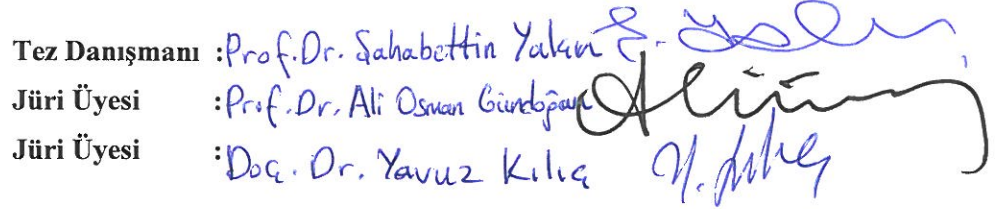 Tez Danışmanı :Prof.Dr. Şahabettin Yalçın
Jüri Üyesi :Prof.Dr. Ali Osman Gündoğan
Jüri Üyesi :Doç. Dr. Yavuz Kılıç